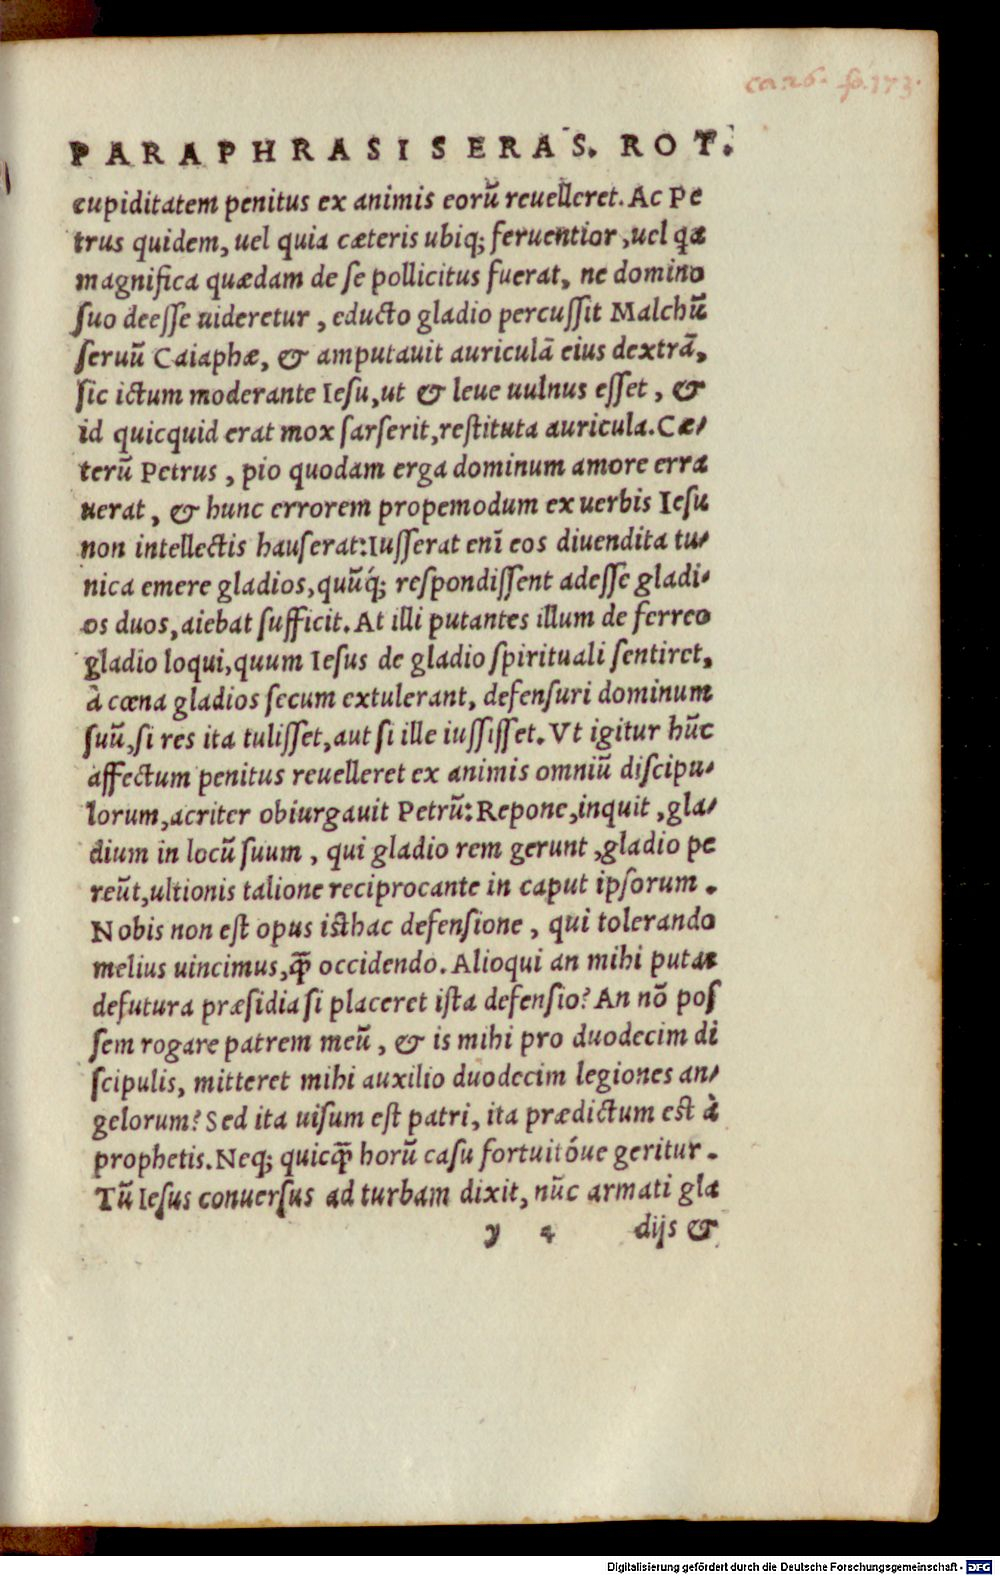 ca. 26. fo. 173.
PARAPHRASIS ERAS. ROT.
cupiditatem penitus ex animis eorũ reuelleret. Ac Pe
trus quidem, uel quia cæteris ubiq; feruentior, uel qa
magnifica quædam de se pollicitus fuerat, ne domino
suo deesse uideretur, educto gladio percussit Malchũ
seruũ Caiaphæ, & amputauit auriculã eius dextrã,
sic ictum moderante Iesu, ut & leue uulnus esset, &
id quicquid erat mox sarserit, restituta auricula. Cæ-
terũ Petrus, pio quodam erga dominum amore erra
uerat, & hunc errorem propemodum ex uerbis Iesu
non intellectis hauserat: Iusserat enĩ eos diuendita tu-
nica emere gladios, quũq́; respondissent adesse gladi-
os duos, aiebat sufficit. At illi putantes illum de ferreo
gladio loqui, quum Iesus de gladio spirituali sentiret,
à cœna gladios secum extulerant, defensuri dominum
suũ, si res ita tulisset, aut si ille iussisset. Vt igitur hũc
affectum penitus reuelleret ex animis omniũ discipu-
lorum, acriter obiurgauit Petrũ: Repone, inquit, gla-
dium in locũ suum, qui gladio rem gerunt, gladio pe
reũt, ultionis talione reciprocante in caput ipsorum.
Nobis non est opus isthac defensione, qui tolerando
melius uincimus, q̃ occidendo. Alioqui an mihi putas
defutura præsidia si placeret ista defensio? An nõ pos
sem rogare patrem meũ, & is mihi pro duodecim di
scipulis, mitteret mihi auxilio duodecim legiones an-
gelorum? Sed ita uisum est patri, ita prædictum est à
prophetis. Neq; quicq̃ horũ casu fortuitóue geritur.
Tũ Iesus conuersus ad turbam dixit, nũc armati gla
y 4 dijs &
Digitalisierung gefördert durch die Deutsche Forschungsgemeinschaft - DFG